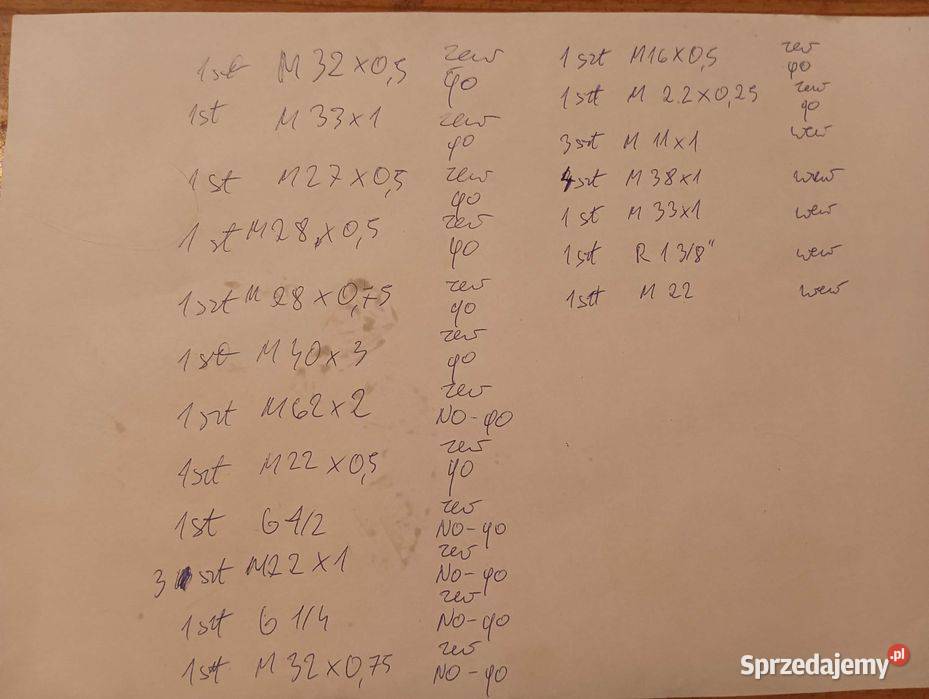 1szt M 32 x 0,5 zew
go
1szt M 33 x 1 zew
go
1szt M 27 x 0,5 zew
go
1szt M 28 x 0,5 zew
go
1szt M 28 x 0,75 zew
go
1szt M 40 x 3 zew
go
1szt M 62 x 2 zew
NO-go
1szt M 22 x 0,5 zew
go
1szt G 1/2 zew
NO-go
3 szt M 22 x 1 zew
NO-go
1szt G 1/4 zew
NO-go
1szt M 32 x 0,75 zew
NO-go
1 szt M 16 x 0,5 zew
go
1szt M 2.2 x 0,25 zew
go
3szt M 11 x 1 wew
4szt M 38 x 1 wew
1szt M 33 x 1 wew
1szt R 1 3/8" wew
1szt M 22 wew
Sprzedajemy.pl